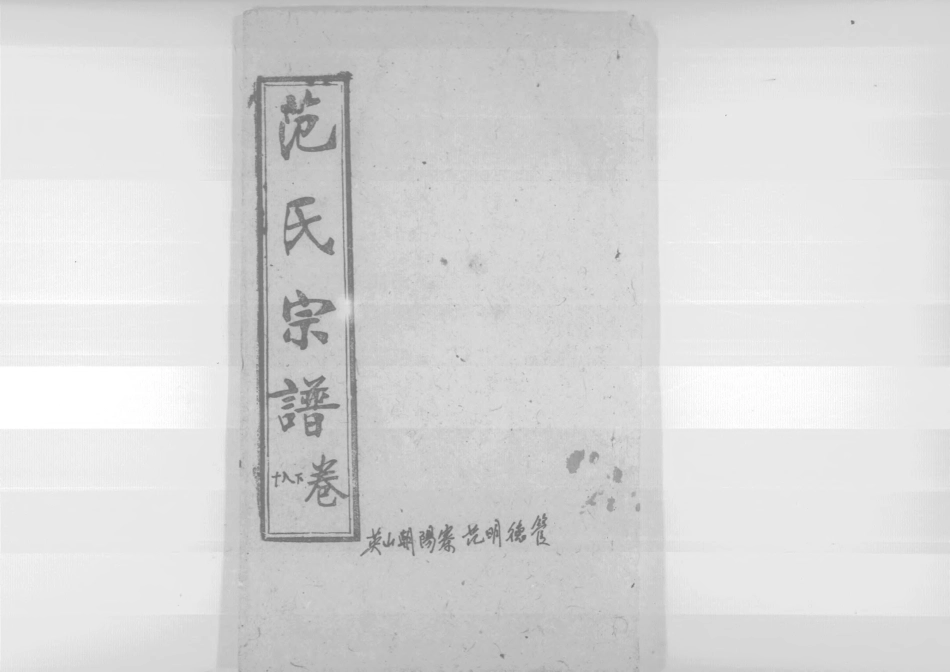 范氏宗譜卷
十八下
英山朝陽寨范明德管